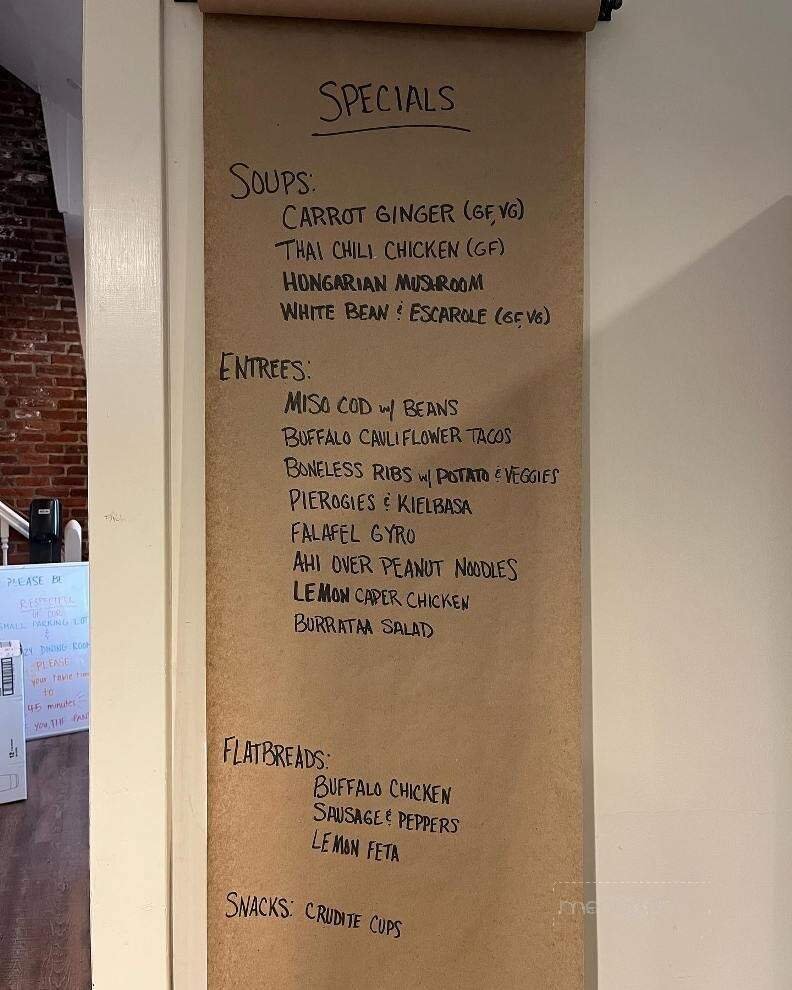 SPECIALS
SOUPS:
CARROT GINGER (GF, VG)
THAI CHILI CHICKEN (GF)
HUNGARIAN MUSHROOM
WHITE BEAN & ESCAROLE (GF, VG)
ENTREES:
MISO COD w/ BEANS
BUFFALO CAULIFLOWER TACOS
BONELESS RIBS w/ POTATO & VEGGIES
PIEROGIES & KIELBASA
FALAFEL GYRO
AHI OVER PEANUT NOODLES
LEMON CAPER CHICKEN
BURRATAA SALAD
FLATBREADS:
BUFFALO CHICKEN
SAUSAGE & PEPPERS
LEMON FETA
SNACKS: CRUDITE CUPS
PLEASE BE
RESPECTFUL
OF OUR
SMALL PARKING LOT
&
DINING ROOM
PLEASE
your table time
to
45 minutes